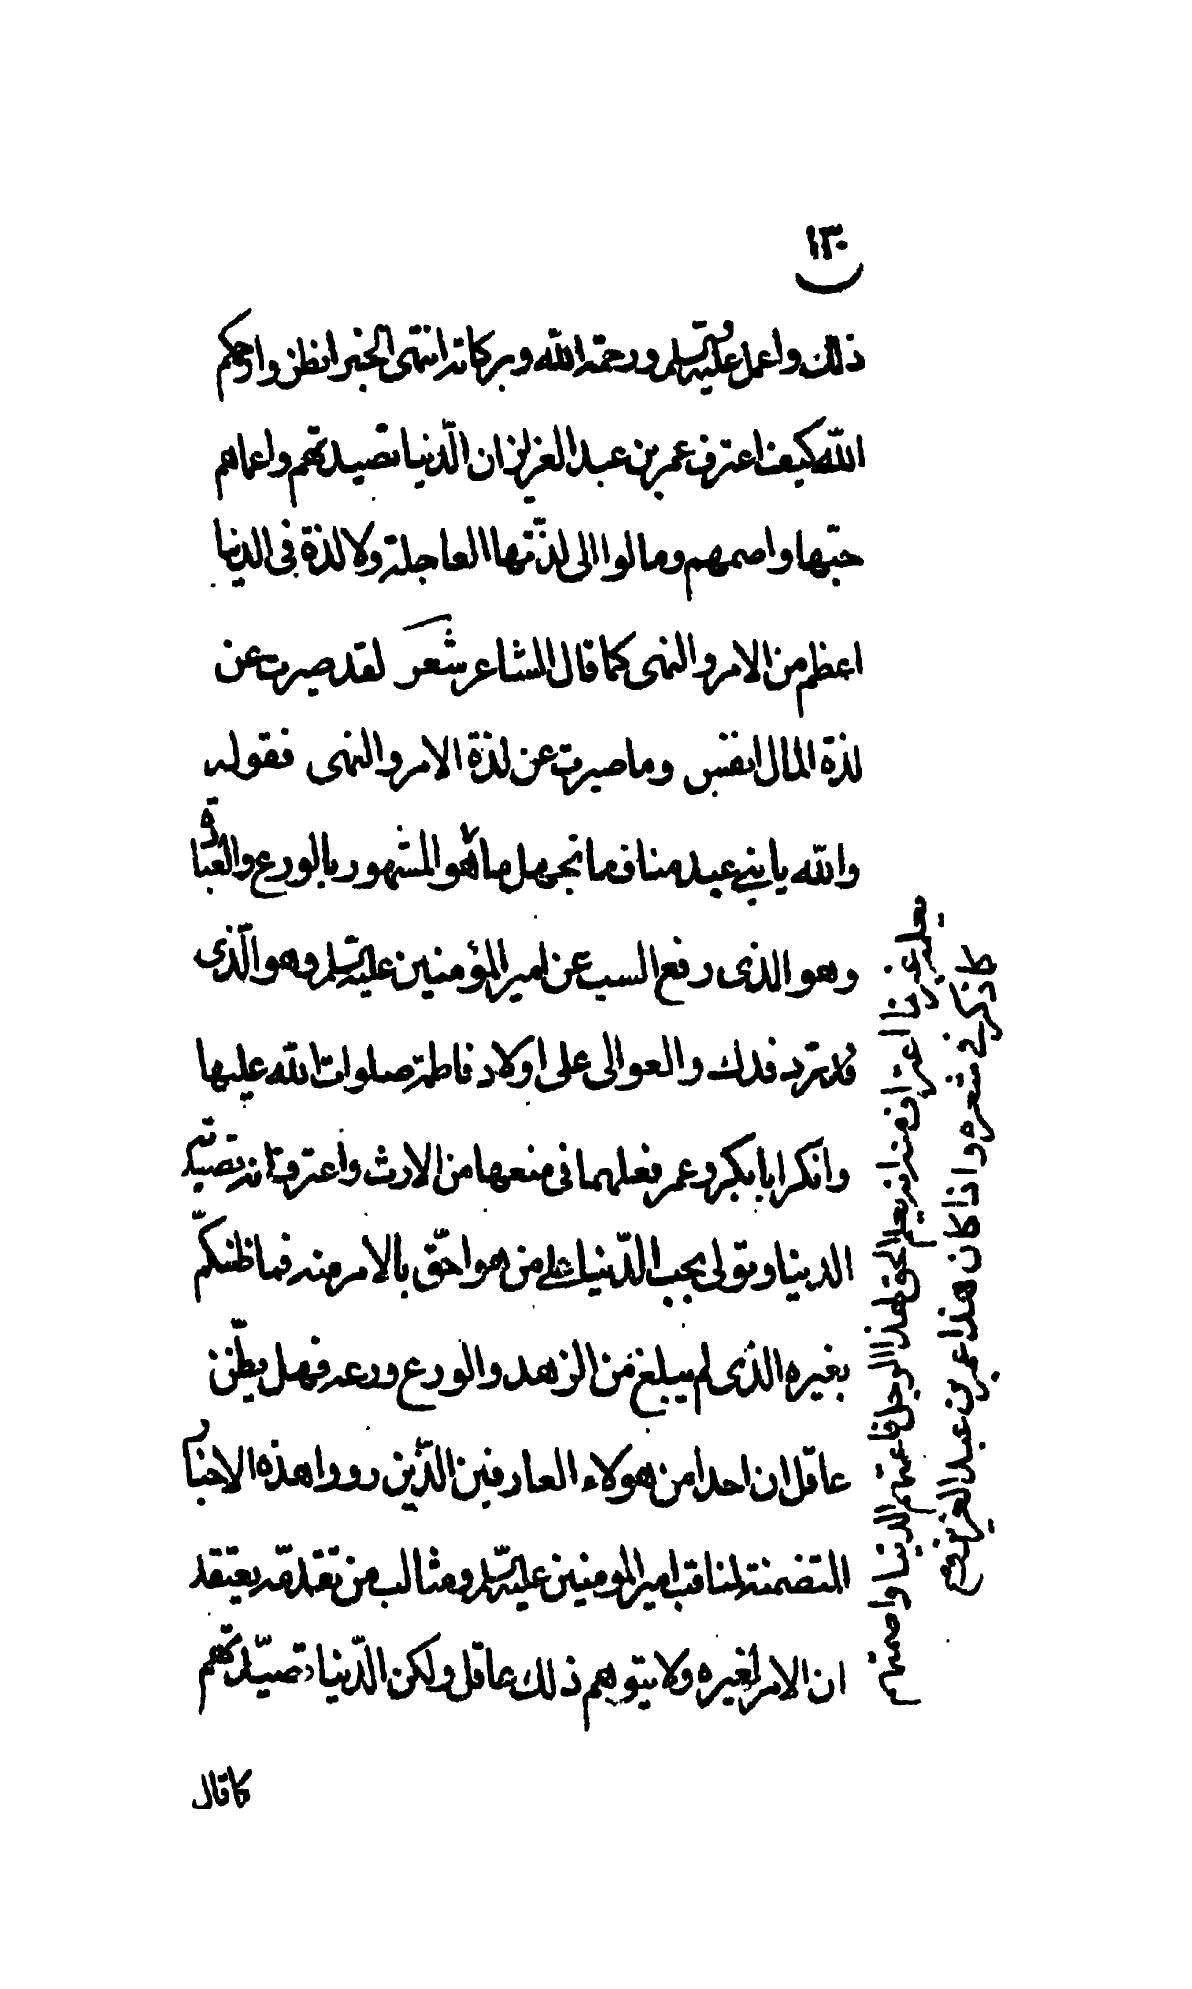 ١٣٠
ذلك واعمل عليه والسلم ورحمة الله وبركاته انتهى الخبر انظن وارحمكم
الله كيف اعترف عمر بن عبد العزيز ان الدنيا تصيدتهم واعماهم
حبها واصمهم ومالوا الى لذتها العاجلة ولا لذة فى الدنيا
اعظم من الامر والنهى كما قال الشاعر شعر لقد صبرت عن
لذة المال انفس وما صبرت عن لذة الامر والنهى فقوله
والله يا بنى عبد مناف ما نجهل ما هو المشهور بالورع والعبادة
وهو الذى رفع السب عن امير المؤمنين عليه السلم وهو الّذى
رد فدك والعوالى على اولاد فاطمة صلوات الله عليها
وانكر ابا بكر وعمر فعلهما فى منعها من الارث واعترف انه تصيدته
الدينا وتولى بحب الدّنيا على من هو احّق بالامر منه فما ظنكّم
بغيره الذى لم يبلغ من الزهد والورع ورعه فهل يظّن
عاقل ان احدا من هولاء العارفين الّذين رووا هذه الاخبار
المتضمنة لمناقب امير المومنين عليه السلم ومثالب من تقدمه يعتقد
ان الامر لغيره ولا يتوهم ذلك عاقل ولكن الدّنيا تصيّدتهم
كما قال
يعلم غيرنا اعتراف منه انه يعلم الحق لهذا الرجل فاعمتهم الدنيا واصمتهم
كما ذكر فى شعره واذا كان هذا عمر بن عبد العزيز